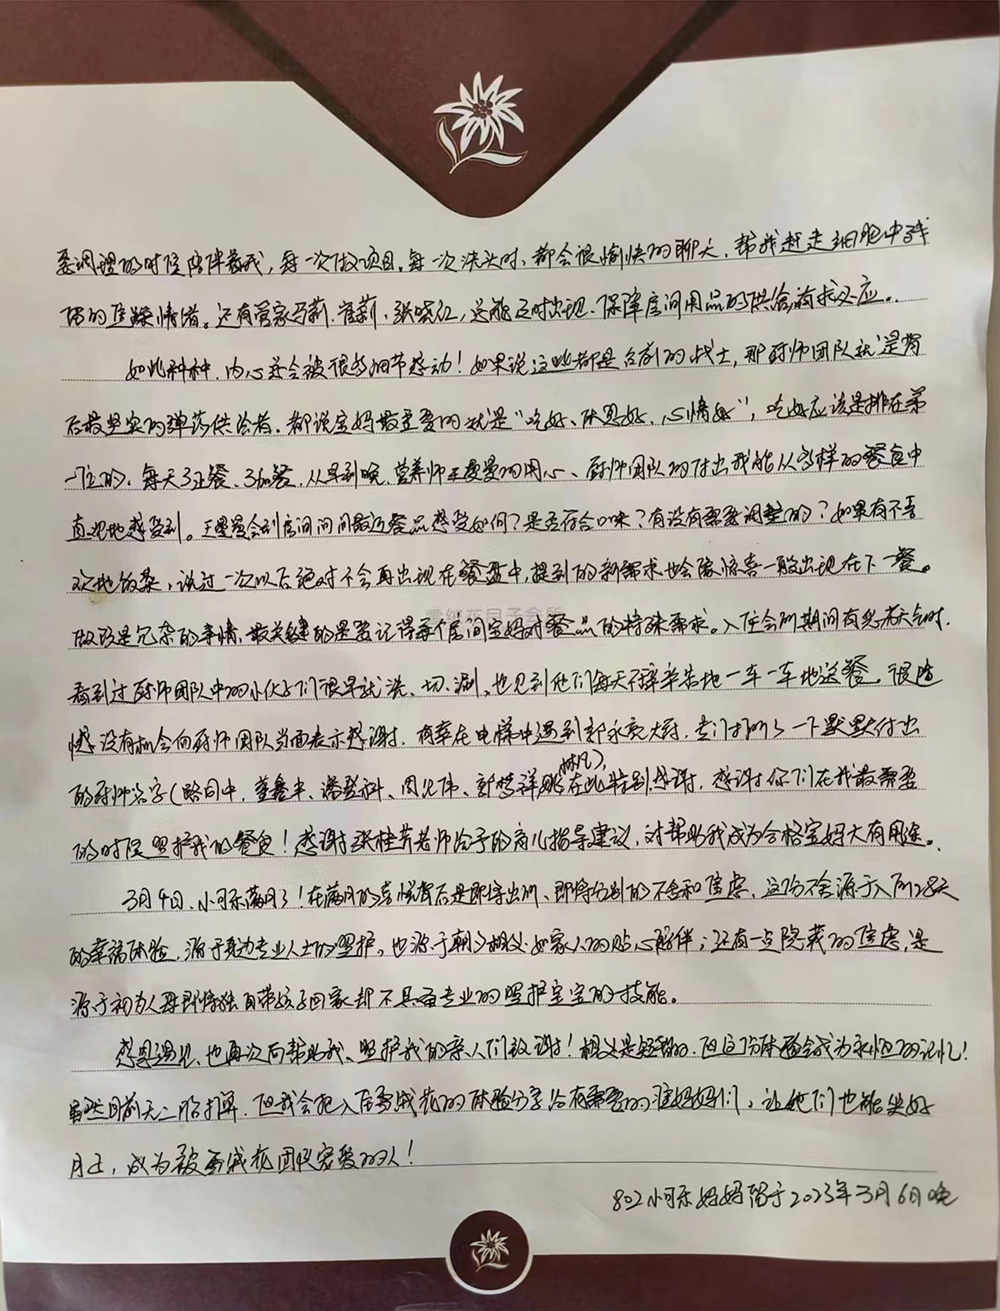 要调理的时候陪伴着我，每一次做项目，每一次洗头时，都会很愉快的聊天，帮我赶走细胞中残
留的焦躁情绪。还有管家马莉、崔莉、张晓红，总能及时出现，保障房间用品的供给有求必应。
如此种种，内心并会被很多细节感动！如果说这些都是台前的战士，那厨师团队就是背
后最坚实的弹药供给者。都说宝妈最重要的就是“吃好、休息好、心情好”，吃好应该是排在第
一位的，每天3正餐、3加餐，从早到晚，营养师王曼曼的用心、厨师团队的付出我能从每样的餐食中
直观地感受到。王曼曼会到房间问问最近餐品感受如何？是否符合口味？有没有需要调整的？如果有不喜
欢地饭菜，说过一次以后绝对不会再出现在餐盘中，提到的新需求也会像惊喜一般出现在下一餐。
做饭是冗杂的事情，最关键的是要记得每个房间宝妈对餐品的特殊需求。入住会所期间有几天
看到过厨师团队中的小伙子们很早就洗、切、涮，也见到他们每天不辞辛苦地一车一车地送餐。很遗
憾没有机会向厨师团队当面表示感谢，有幸在电梯中遇到郭永亮大厨，专门打听了一下默默付出
的厨师名字，在此特别感谢，感谢你们在我最需要
的时候照护我的餐食！感谢张桂芹老师给予的育儿指导建议，对帮助我成为合格宝妈大有用途。
3月4日，小可乐满月了！在满月的喜悦背后是即将出所、即将分别的不舍和焦虑，这份不舍源于入所28天
的幸福体验，源于身边专业人士的照护。也源于朝夕相处如家人的贴心陪伴；还有一点隐藏的焦虑，是
源于初为人母即将独自带孩子回家却不具备专业的照护宝宝的技能。
感恩遇见，也再次向帮助我、照护我的亲人们致谢！相处是短暂的，但这份体验会成为永恒的记忆！
虽然目前无二胎打算，但我会把入住雪绒花的体验分享给有需要的准妈妈们，让她们也能坐好
月子，成为被雪绒花团队宠爱的人！
802小可乐妈妈留于2023年3月6日晚
雪绒花月子会所